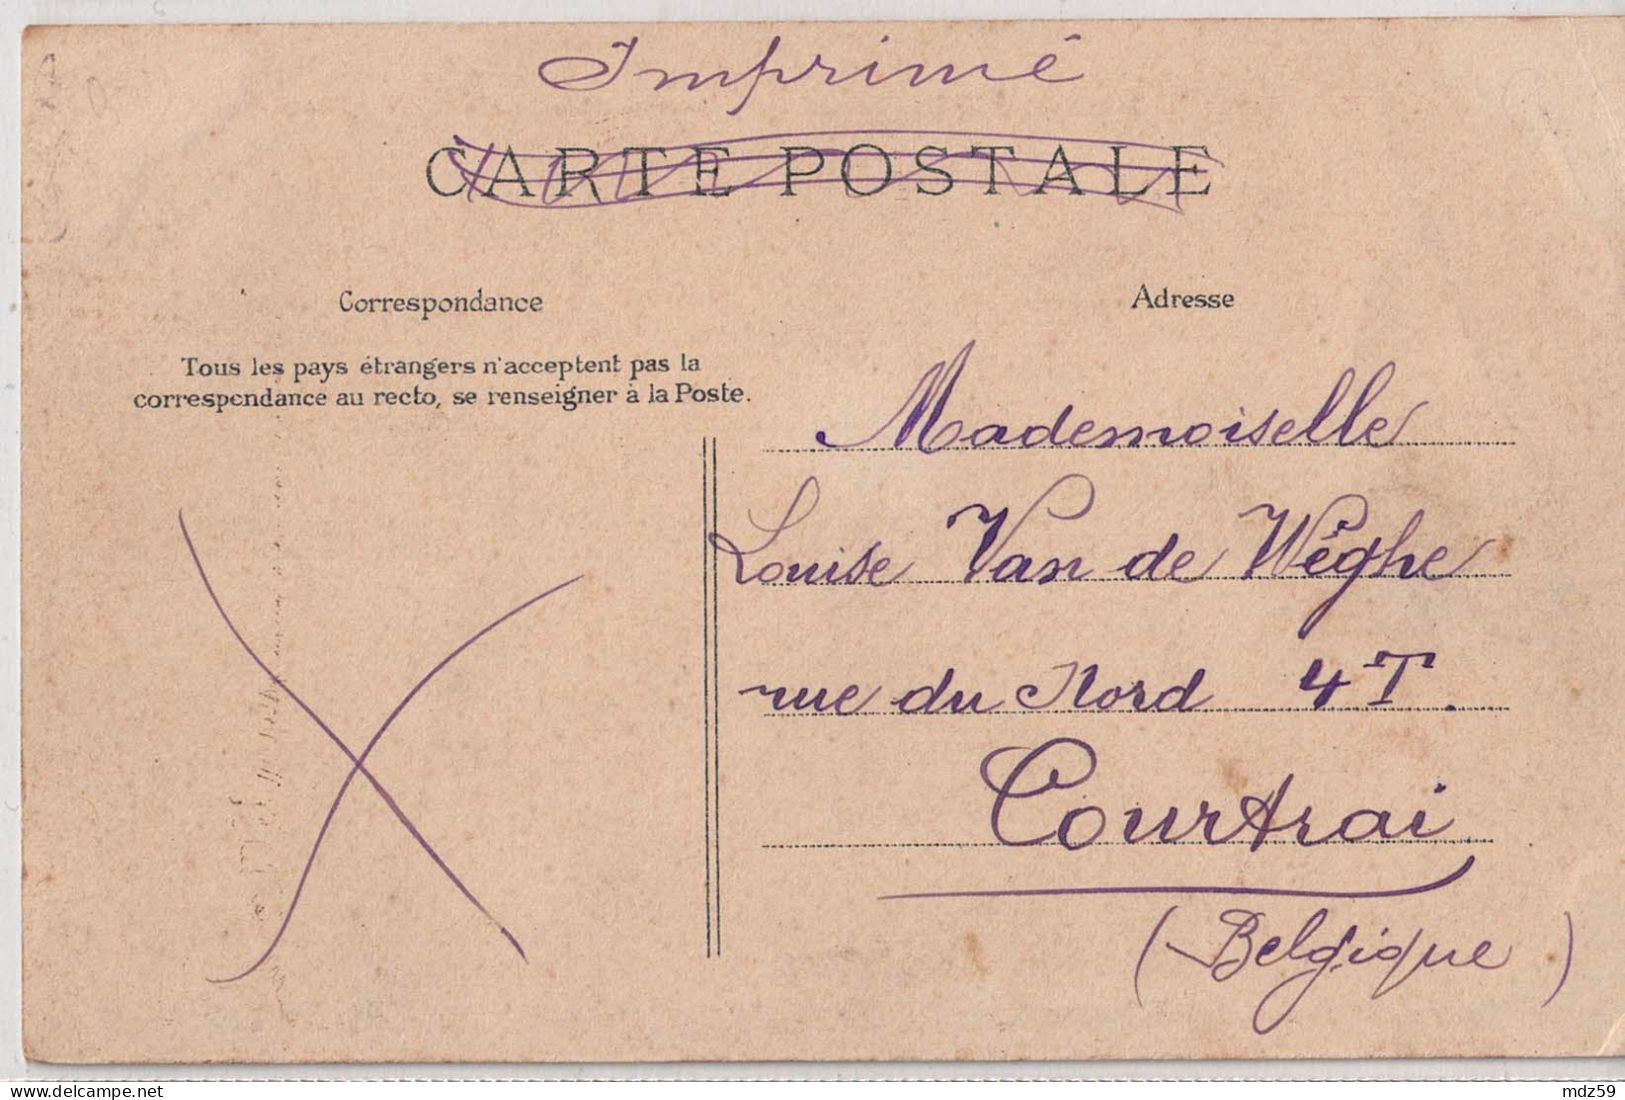 Imprimé
CARTE POSTALE
Correspondance
Adresse
Tous les pays étrangers n'acceptent pas la
correspondance au recto, se renseigner à la Poste.
Mademoiselle
Louise Van de Wêghe
rue du Nord 4T.
Courtrai
(Belgique)
delcampe.net
mdz59